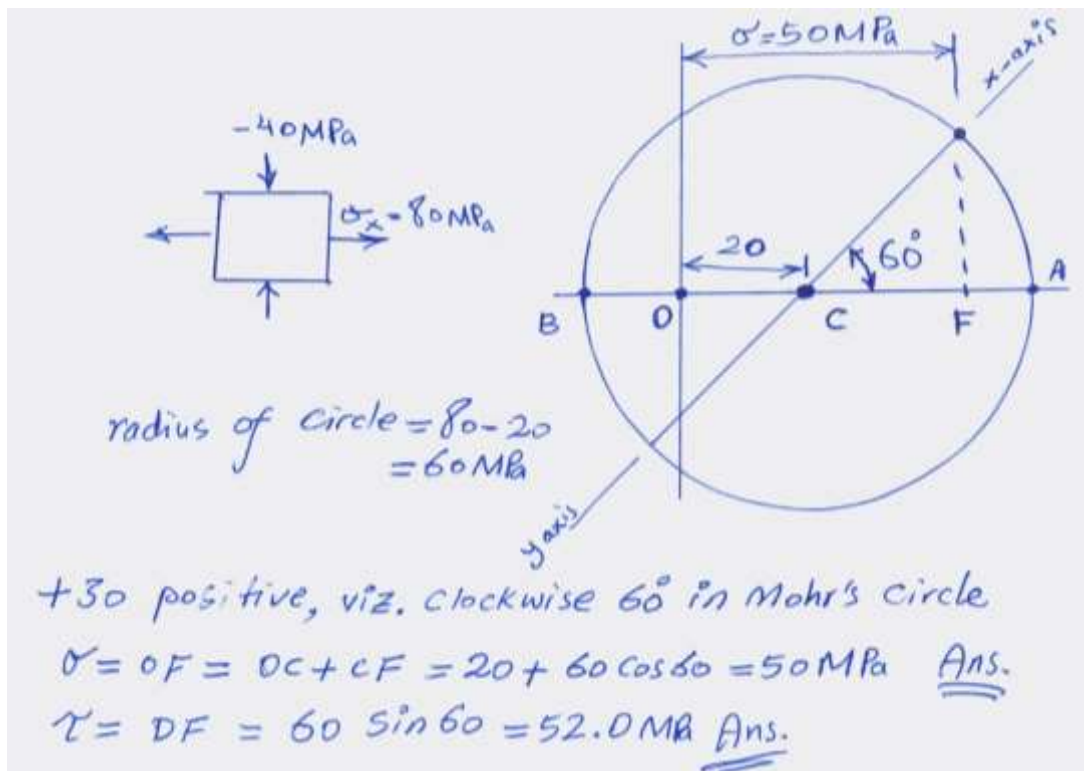 σ=50MPa
x-axis
-40MPa
σx=80MPa
20
60°
B
O
C
F
A
radius of Circle=80-20
=60MPa
y axis
+30 positive, viz. Clockwise 60° in Mohr's Circle
σ= OF = OC+CF =20+60Cos60=50MPa Ans.
τ= DF = 60 Sin60=52.0MPa Ans.